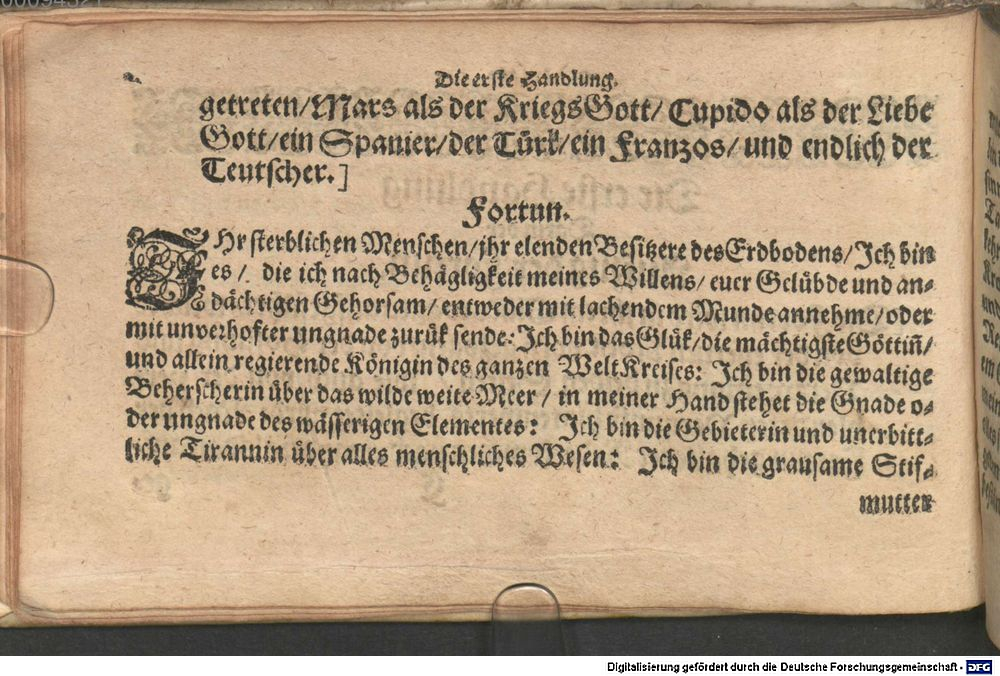 Die erste Handlung.
getreten/Mars als der KriegsGott/ Cupido als der Liebe
Gott/ein Spanier/der Türk/ein Franzos/ und endlich der
Teutscher.]
Fortun.
IHr sterblichen Menschen/jhr elenden Besitzere des Erdbodens/Ich bin
es/ die ich nach Behägligkeit meines Willens/ euer Gelübde und an-
dächtigen Gehorsam/ entweder mit lachendem Munde annehme/oder
mit unverhofter ungnade zurük sende: Ich bin das Glük/die mächtigste Göttiñ/
und allein regierende Königin des ganzen WeltKreises: Ich bin die gewaltige
Beherscherin über das wilde weite Meer/ in meiner Hand stehet die Gnade o-
der ungnade des wässerigen Elementes: Ich bin die Gebieterin und unerbitt-
liche Tirannin über alles menschliches Wesen: Ich bin die grausame Stif-
mutter
Digitalisierung gefördert durch die Deutsche Forschungsgemeinschaft - DFG